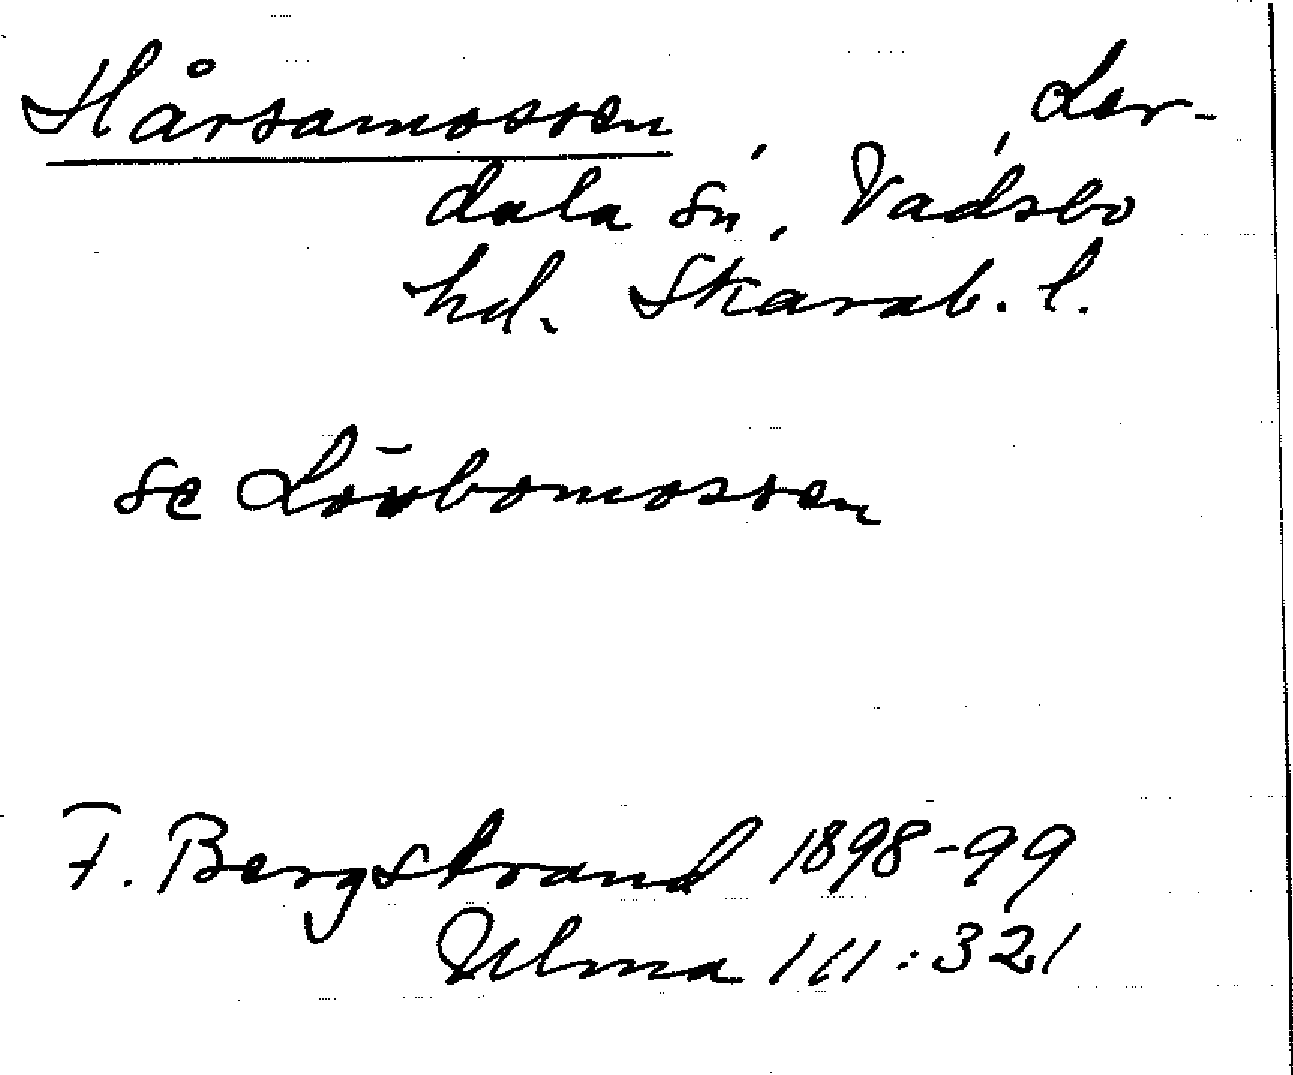 Hårsamossen, , Ler-
dala sn, Vadsbo
hd. Skarab. l.
se Lövbomossen
F. Bergstrand 1898-99
Ulma 111:321